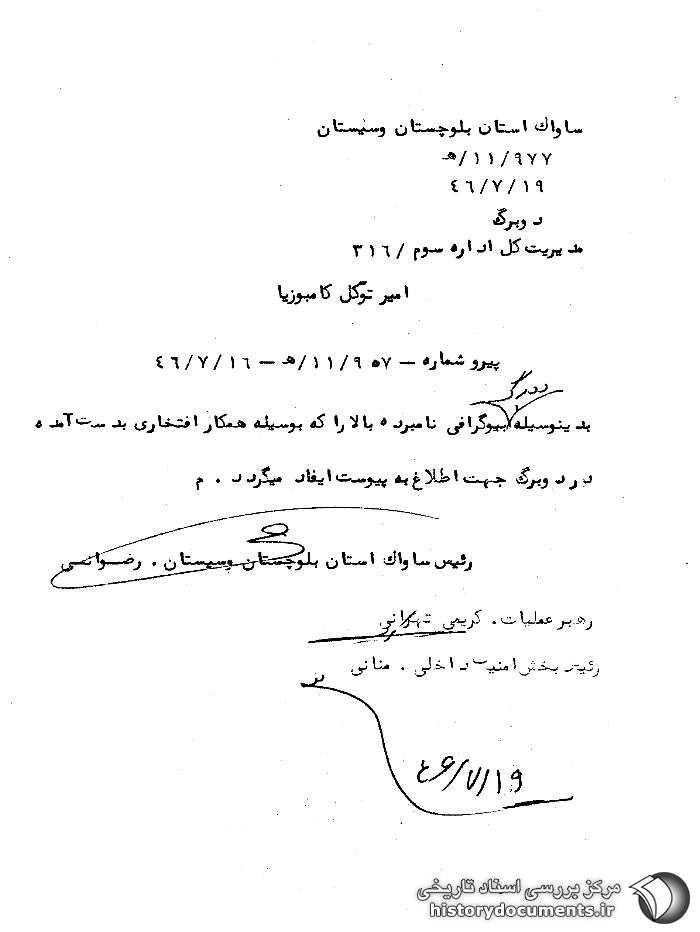 ساواك استان بلوچستان وسیستان
۹۷۷/۱۱/ﻫ
۴۶/۷/۱۹
دوبرگ
مدیریت کل اداره سوم /۳۱۶
امیر توکل کامبوزیا
پیرو شماره – ۹۵۷/۱۱/ﻫ – ۴۶/۷/۱۶
بدینوسیله بیوگرافی نامبرده بالا را که بوسیله همکار افتخاری بدست آمده
در دوبرگ جهت اطلاع به پیوست ایفاد میگردد . م
رئیس ساواك استان بلوچستان وسیستان . رضوانی
رهبر عملیات . کریمی تهرانی
رئیس بخش امنیت داخلی . منانی
۴۶/۷/۱۹
مرکز بررسی اسناد تاریخی
historydocuments.ir